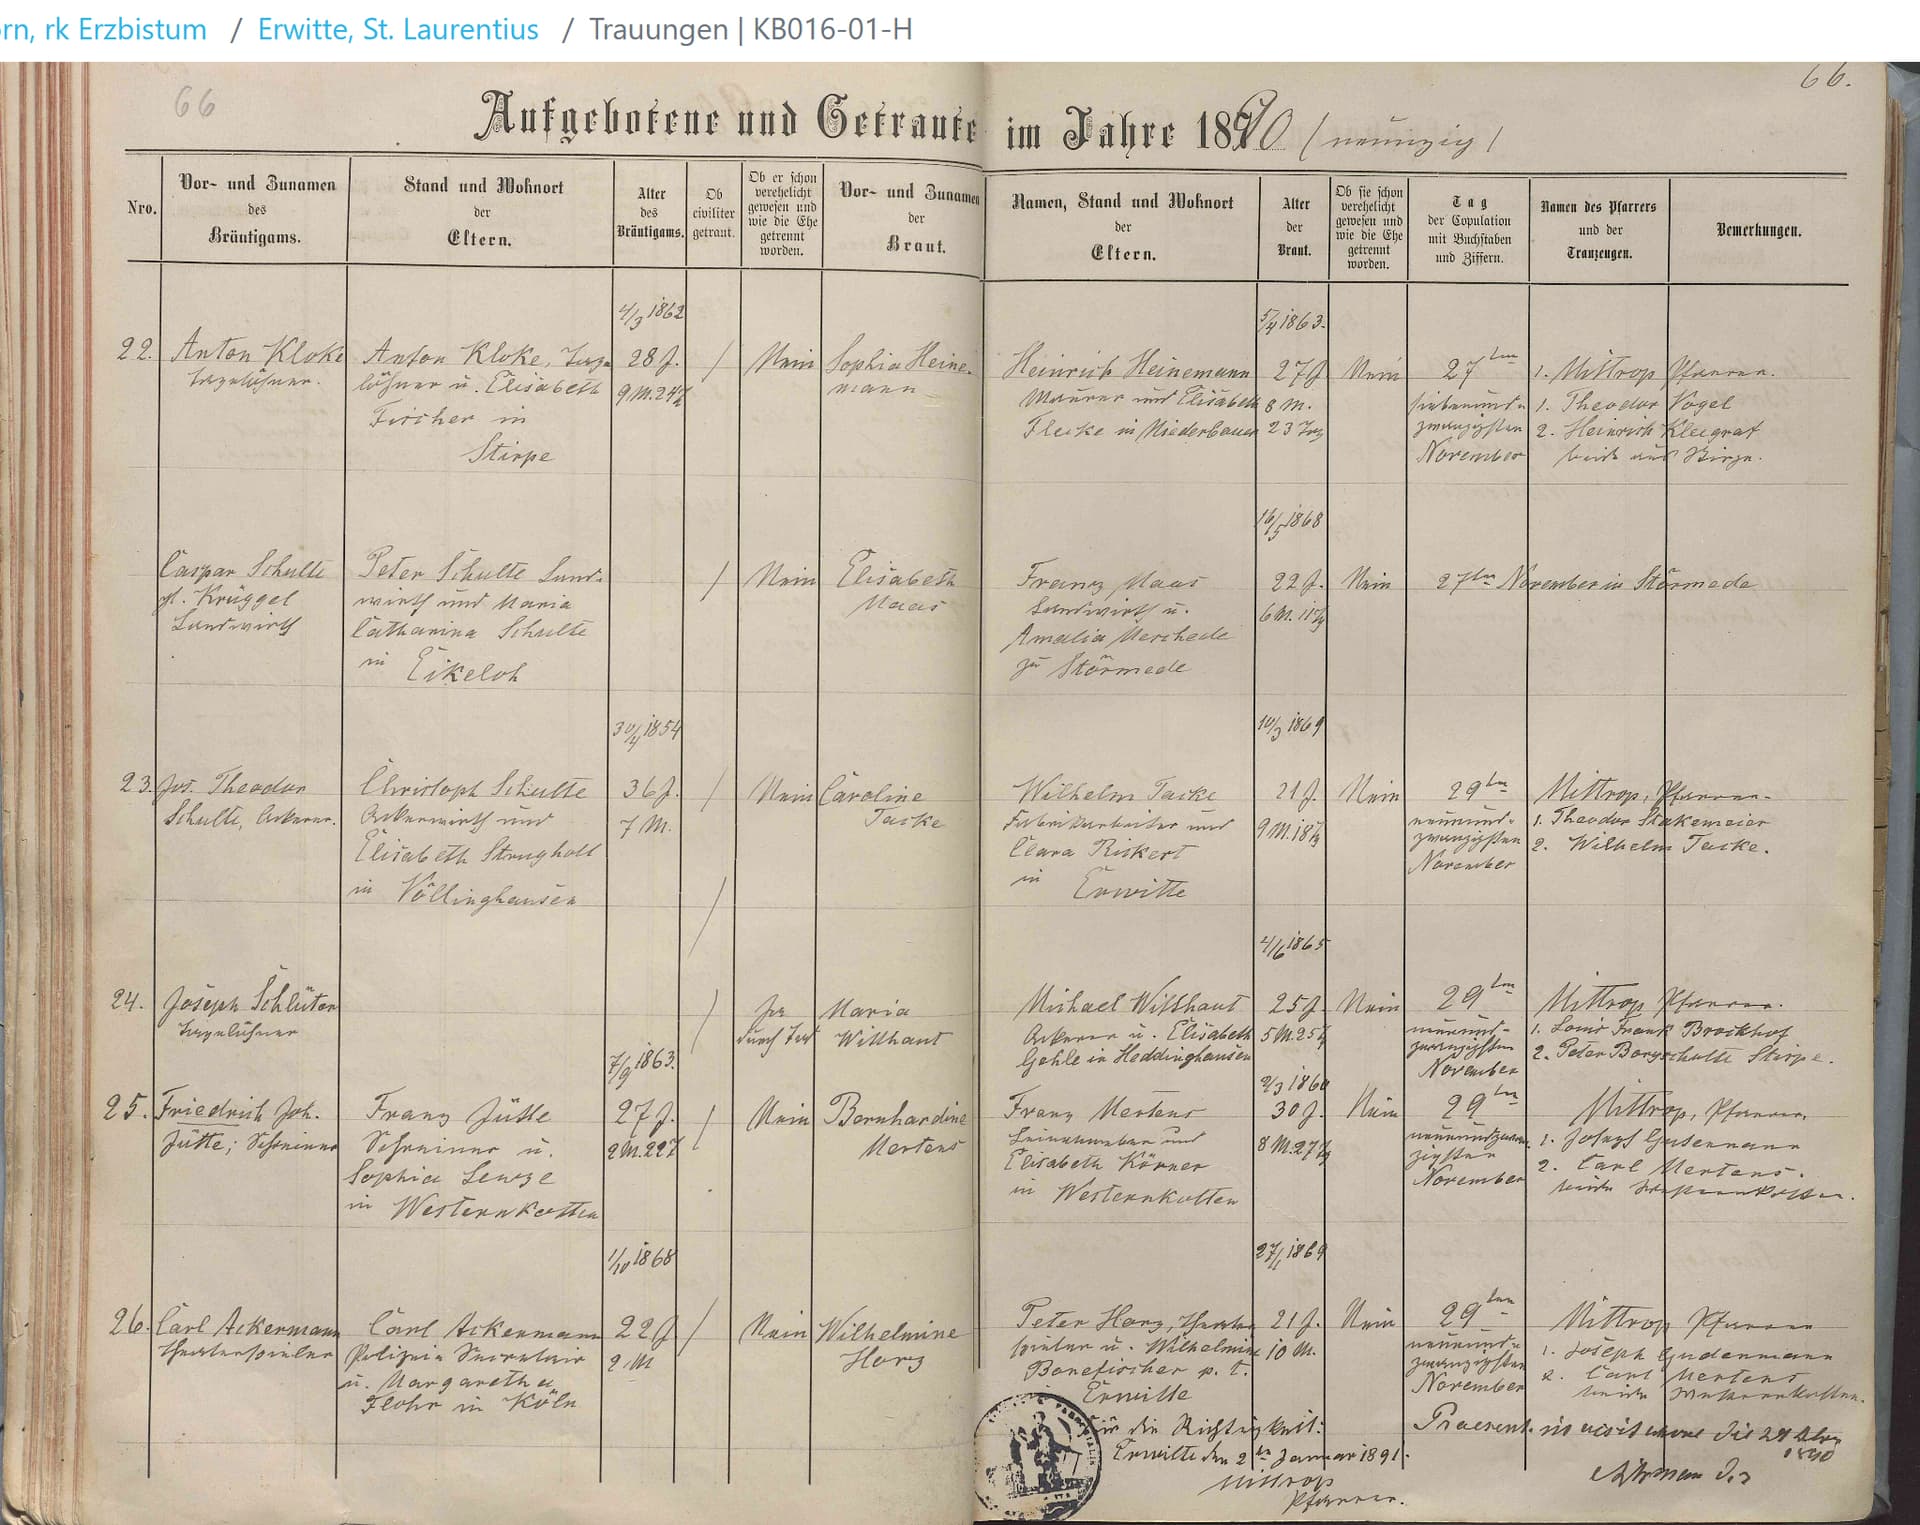 rn, rk Erzbistum / Erwitte, St. Laurentius / Trauungen | KB016-01-H
66
66.
Aufgebotene und Getraute im Jahre 1890 (neunzig)
Nro.
Vor- und Zunamen
des
Bräutigams.
Stand und Wohnort
der
Eltern.
Alter
des
Bräutigams.
Ob
civiliter
getraut.
Ob er schon
verehelicht
gewesen und
wie die Ehe
getrennt
worden.
Vor- und Zunamen
der
Braut.
Namen, Stand und Wohnort
der
Eltern.
Alter
der
Braut.
Ob sie schon
verehelicht
gewesen und
wie die Ehe
getrennt
worden.
Tag
der Copulation
mit Buchstaben
und Ziffern.
Namen des Pfarrers
und der
Trauzeugen.
Bemerkungen.
22.
Anton Kloke
Tagelöhner.
Anton Kloke, Tage
löhner u. Elisabeth
Fischer in
Stirpe
4/3 1862
28 J.
9 M. 24 T
/
Nein
Sophia Heine-
mann
Heinrich Heinemann
Maurer und Elisabeth
Flecke in Niederbauer
5/4 1863.
27 J
8 M.
23 Tag
Nein
27ten
siebenund-
zwanzigsten
November
1. Mittrop Pfarrer.
1. Theodor Vogel
2. Heinrich Kleegraf
beide aus
Caspar Schulte
gt. Krüggel
Landwirth
Peter Schulte Land-
wirth und Maria
Catharina Schulte
in Eikeloh
/
Nein
Elisabeth
Maas
Franz Maas
Landwirth u.
Amalia Meschede
zu Störmede
16/5 1868
22 J.
6 M. 11 Tg
Nein
27ten November in Störmede
23.
Jos. Theodor
Schulte, Ackerer.
Christoph Schulte
Ackerwirth und
Elisabeth Strugholl
in Völlinghausen
30/4 1854
36 J.
7 M.
/
Nein
Caroline
Tacke
Wilhelm Tacke
Fabrikarbeiter und
Clara Rickert
in Erwitte
10/3 1869
21 J.
9 M. 18 Tg
Nein
29ten
neunund-
zwanzigsten
November
Mittrop, Pfarrer.
1. Theodor Stakemeier
2. Wilhelm Tacke.
/
24.
Joseph Schlüter
Tagelöhner
/
Ja
durch Tod
Maria
Witthaut
Michael Witthaut
Ackerer u. Elisabeth
Gehle in Heddinghausen
4/6 1865
25 J.
5 M. 25 Tg
Nein
29ten
neunund-
zwanzigsten
November
Mittrop Pfarrer.
1. Louis Frank Brockhof
2. Peter Borgschulte Stirpe.
25.
Friedrich Joh.
Jütte; Schreiner
Franz Jütte
Schreiner u.
Sophia
in Westernkotten
7/9 1863.
27 J.
2 M. 22 T
/
Nein
Bernhardine
Mertens
Franz Mertens
Leineweber und
Elisabeth Körner
in Westernkotten
2/3 1860
30 J.
8 M. 27 Tg
Nein
29ten
neunundzwan-
zigsten
November
Mittrop, Pfarrer.
1. Joseph
2. Carl Mertens.
beide Westernkotten.
26.
Carl Ackermann
Theaterspieler
Carl Ackermann
Polizei Secretair
u. Margaretha
Flohr in Köln
1/10 1868
22 J
2 M
/
Nein
Wilhelmine
Harz
Peter Harz, Theater
spieler u. Wilhelmine
Bonefischer p. t.
Erwitte
27/1 1869
21 J.
10 M.
Nein
29ten
neunund-
zwanzigsten
November
Mittrop Pfarrer
1. Joseph Gudenmann
2. Carl Mertens
beide Westernkotten.
Für die Richtigkeit:
Erwitte den 2ten Januar 1891.
Mittrop
Pfarrer.
Praesent. in visitatione die
1890